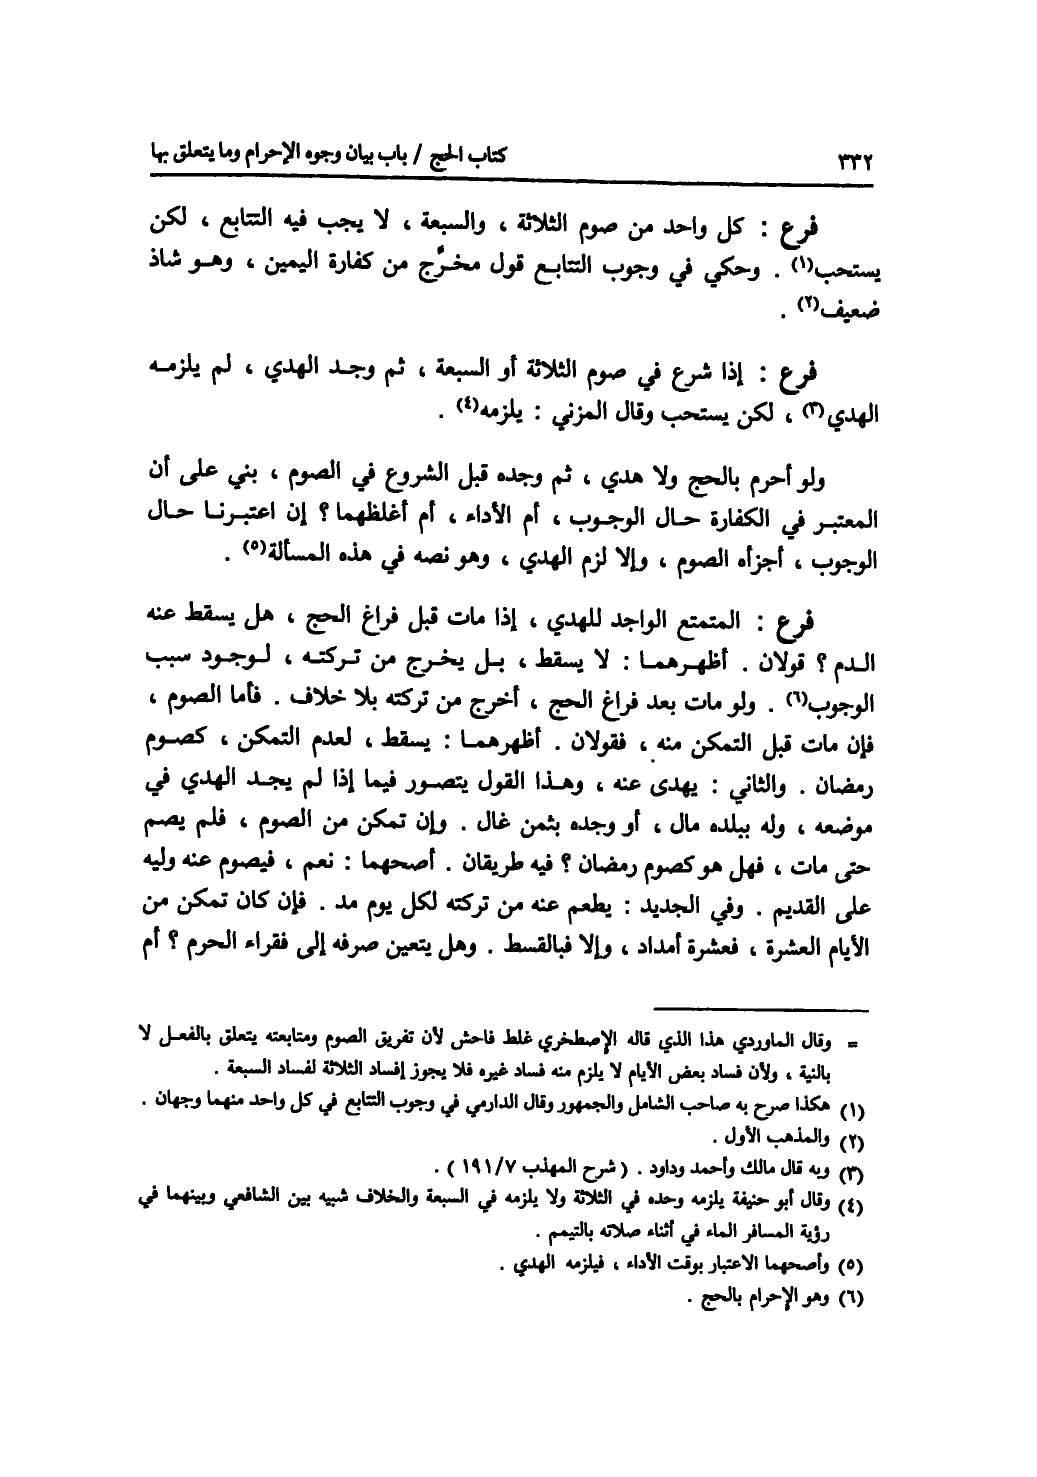 ٣٣٢
كتاب الحج / باب بيان وجوه الإحرام وما يتعلق بها
فرع : كل واحد من صوم الثلاثة ، والسبعة ، لا يجب فيه التتابع ، لكن
يستحب(١) . وحكي في وجوب التتابع قول مخرَّج من كفارة اليمين ، وهو شاذ
ضعيف(٢) .
فرع : إذا شرع في صوم الثلاثة أو السبعة ، ثم وجد الهدي ، لم يلزمه
الهدي(٣) ، لكن يستحب وقال المزني : يلزمه(٤) .
ولو أحرم بالحج ولا هدي ، ثم وجده قبل الشروع في الصوم ، بني على أن
المعتبر في الكفارة حال الوجوب ، أم الأداء ، أم أغلظهما ؟ إن اعتبرنا حال
الوجوب ، أجزأه الصوم ، وإلا لزم الهدي ، وهو نصه في هذه المسألة(٥) .
فرع : المتمتع الواجد للهدي ، إذا مات قبل فراغ الحج ، هل يسقط عنه
الدم ؟ قولان . أظهرهما : لا يسقط ، بل يخرج من تركته ، لوجود سبب
الوجوب(٦) . ولو مات بعد فراغ الحج ، أخرج من تركته بلا خلاف . فأما الصوم ،
فإن مات قبل التمكن منه ، فقولان . أظهرهما : يسقط ، لعدم التمكن ، كصوم
رمضان . والثاني : يهدى عنه ، وهذا القول يتصور فيما إذا لم يجد الهدي في
موضعه ، وله ببلده مال ، أو وجده بثمن غال . وإن تمكن من الصوم ، فلم يصم
حتى مات ، فهل هو كصوم رمضان ؟ فيه طريقان . أصحهما : نعم ، فيصوم عنه وليه
على القديم . وفي الجديد : يطعم عنه من تركته لكل يوم مد . فإن كان تمكن من
الأيام العشرة ، فعشرة أمداد ، وإلا فبالقسط . وهل يتعين صرفه إلى فقراء الحرم ؟ أم
= وقال الماوردي هذا الذي قاله الإصطخري غلط فاحش لأن تفريق الصوم ومتابعته يتعلق بالفعل لا
بالنية ، ولأن فساد بعض الأيام لا يلزم منه فساد غيره فلا يجوز إفساد الثلاثة لفساد السبعة .
(١) هكذا صرح به صاحب الشامل والجمهور وقال الدارمي في وجوب التتابع في كل واحد منهما وجهان .
(٢) والمذهب الأول .
(٣) وبه قال مالك وأحمد وداود . ( شرح المهذب ١٩١/٧ ) .
(٤) وقال أبو حنيفة يلزمه وحده في الثلاثة ولا يلزمه في السبعة والخلاف شبيه بين الشافعي وبينهما في
رؤية المسافر الماء في أثناء صلاته بالتيمم .
(٥) وأصحهما الاعتبار بوقت الأداء ، فيلزمه الهدي .
(٦) وهو الإحرام بالحج .